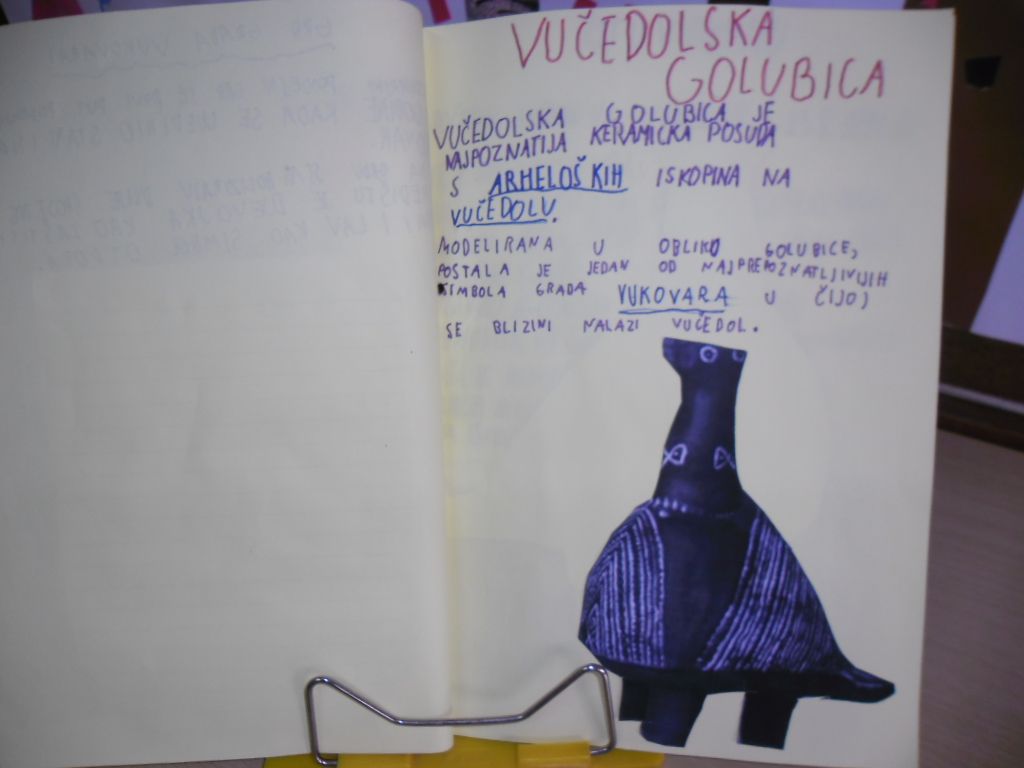 VUČEDOLSKA
GOLUBICA
VUČEDOLSKA GOLUBICA JE
NAJPOZNATIJA KERAMIČKA POSUDA
S ARHELOŠKIH ISKOPINA NA
VUČEDOLU.
MODELIRANA U OBLIKU GOLUBICE,
POSTALA JE JEDAN OD NAJPREPOZNATLJIVIJIH
SIMBOLA GRADA VUKOVARA U ČIJOJ
SE BLIZINI NALAZI VUČEDOL.